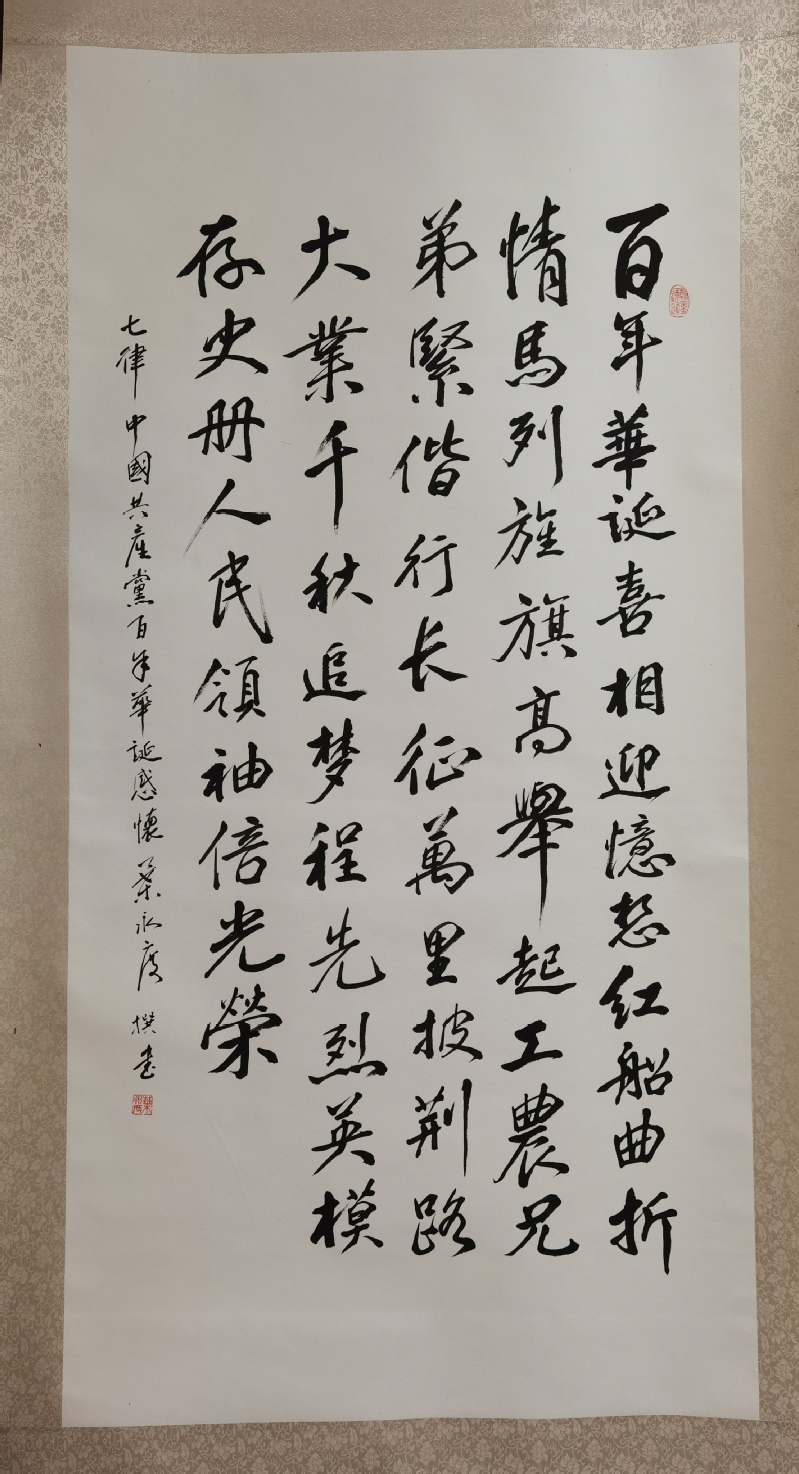 百年華誕喜相迎憶愁红船曲折
情馬列旌旗高舉起工農兄
弟緊偕行长征萬里披荆路
大業千秋追梦程先烈英模
存史册人民領袖倍光榮
七律 中國共產黨百年華誕感懷 葉永度 撰書